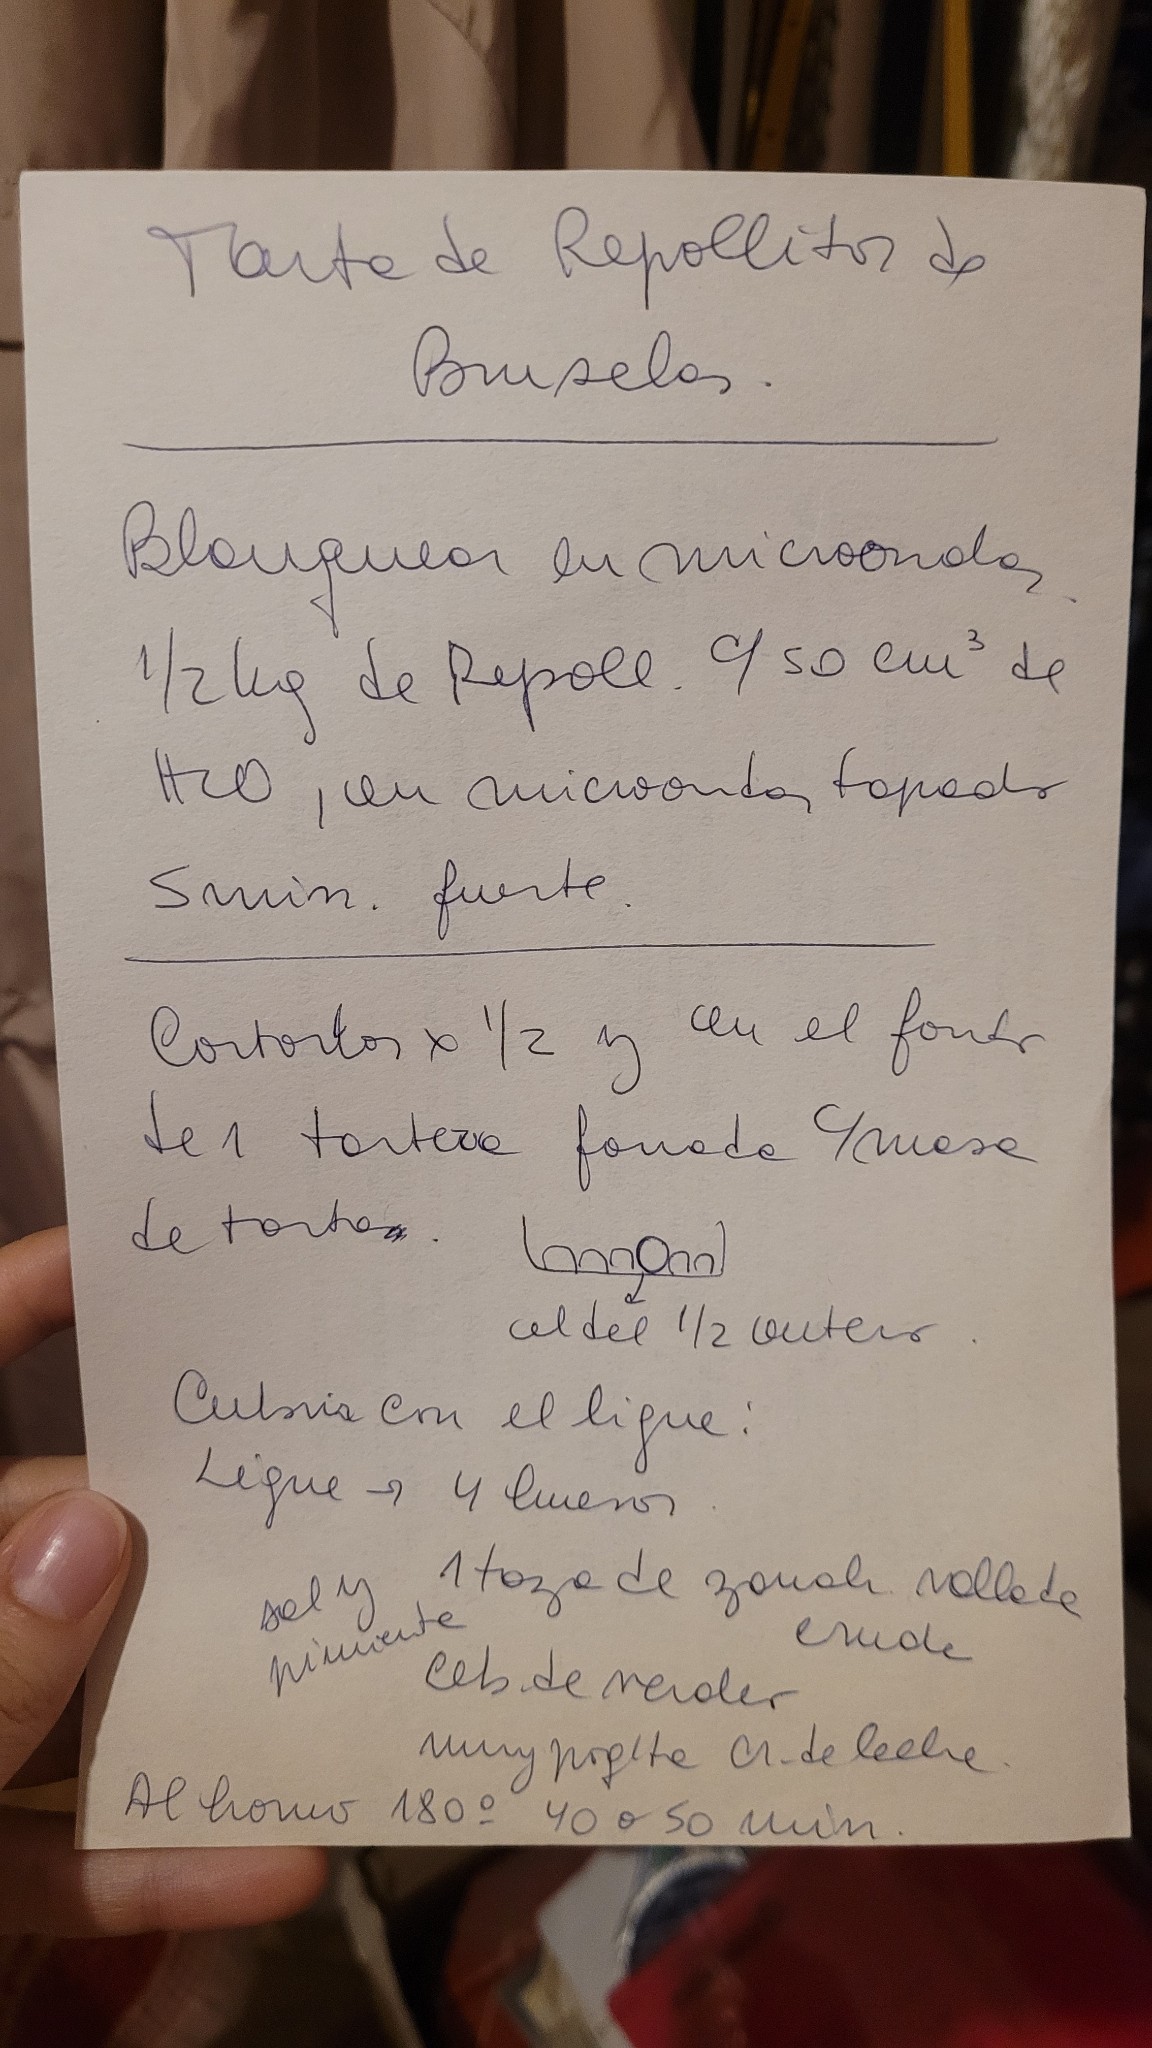 Tarta de Repollitos de
Bruselas.
Blanquear en microondas.
1/2 kg de Repoll. c/ 50 cm³ de
H2O, en microondas tapado
5 min. fuerte.
Cortarlos x 1/2 y en el fondo
de 1 tartera forrada c/masa
de tarta.
el del 1/2 entero.
Cubrir con el ligue:
Ligue → 4 huevos.
sal y pimienta
1 taza de zanah. rallada
cruda
ceb. de verdeo
muy poq/ta cr. de leche.
Al horno 180º 40 o 50 min.